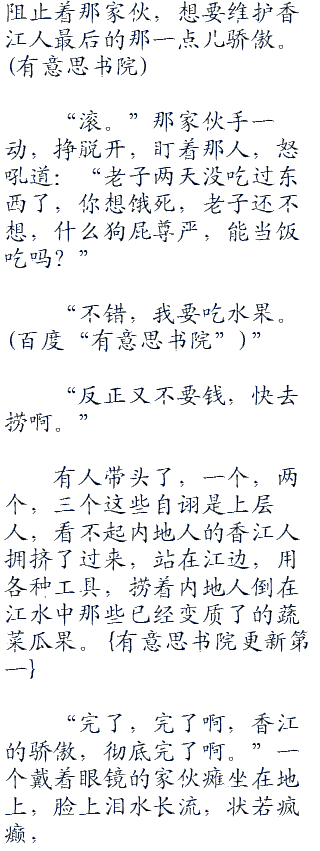 阻止着那家伙，想要维护香
江人最后的那一点儿骄傲。
(有意思书院)
“滚。”那家伙手一
动，挣脱开，盯着那人，怒
吼道：“老子两天没吃过东
西了，你想饿死，老子还不
想，什么狗屁尊严，能当饭
吃吗？”
“不错，我要吃水果。
(百度“有意思书院”)”
“反正又不要钱，快去
捞啊。”
有人带头了，一个，两
个，三个这些自诩是上层
人，看不起内地人的香江人
拥挤了过来，站在江边，用
各种工具，捞着内地人倒在
江水中那些已经变质了的蔬
菜瓜果。{有意思书院更新第
一}
“完了，完了啊，香江
的骄傲，彻底完了啊。”一
个戴着眼镜的家伙瘫坐在地
上，脸上泪水长流，状若疯
癫，